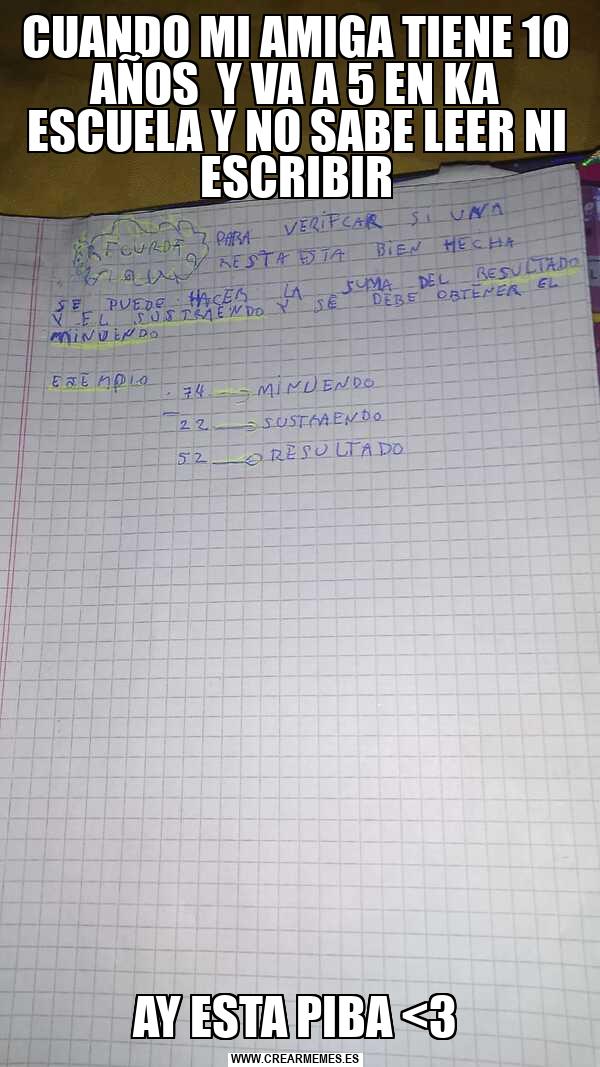 CUANDO MI AMIGA TIENE 10
AÑOS Y VA A 5 EN KA
ESCUELA Y NO SABE LEER NI
ESCRIBIR
RECUROA PARA VERIFCAR SI UNA
RESTA ESTA BIEN HECHA
SE PUEDE HACER LA SUMA DEL RESULTADO
Y EL SUSTRAENDO Y SE DEBE OBTENER EL
MINUENDO
EJEMPLO
- 74 → MINUENDO
22 → SUSTRAENDO
52 → RESULTADO
AY ESTA PIBA <3
WWW.CREARMEMES.ES